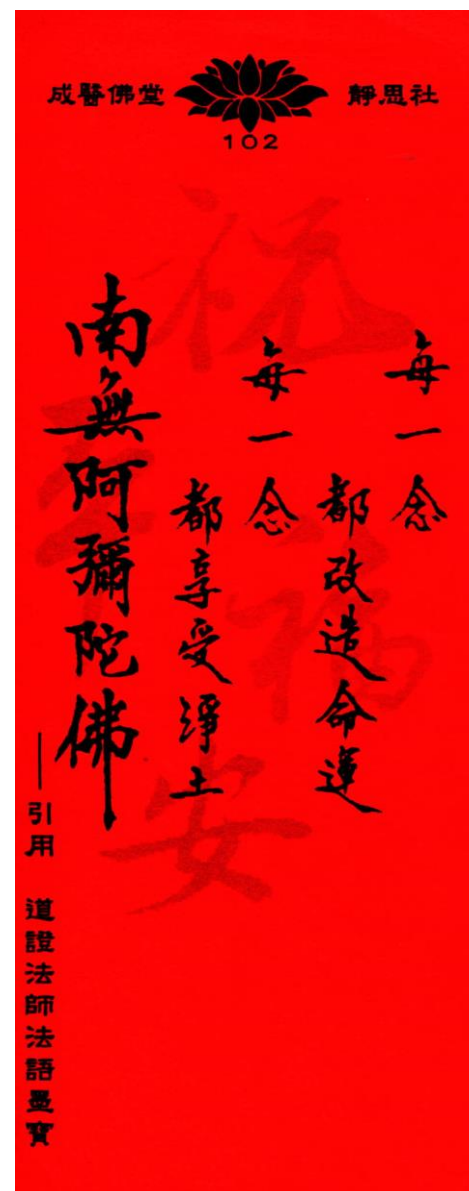 成醫佛堂 靜思社
102
每一念
都改造命運
每一念
都享受淨土
南無阿彌陀佛
——引用 道證法師法語墨寶
祝
福
平安